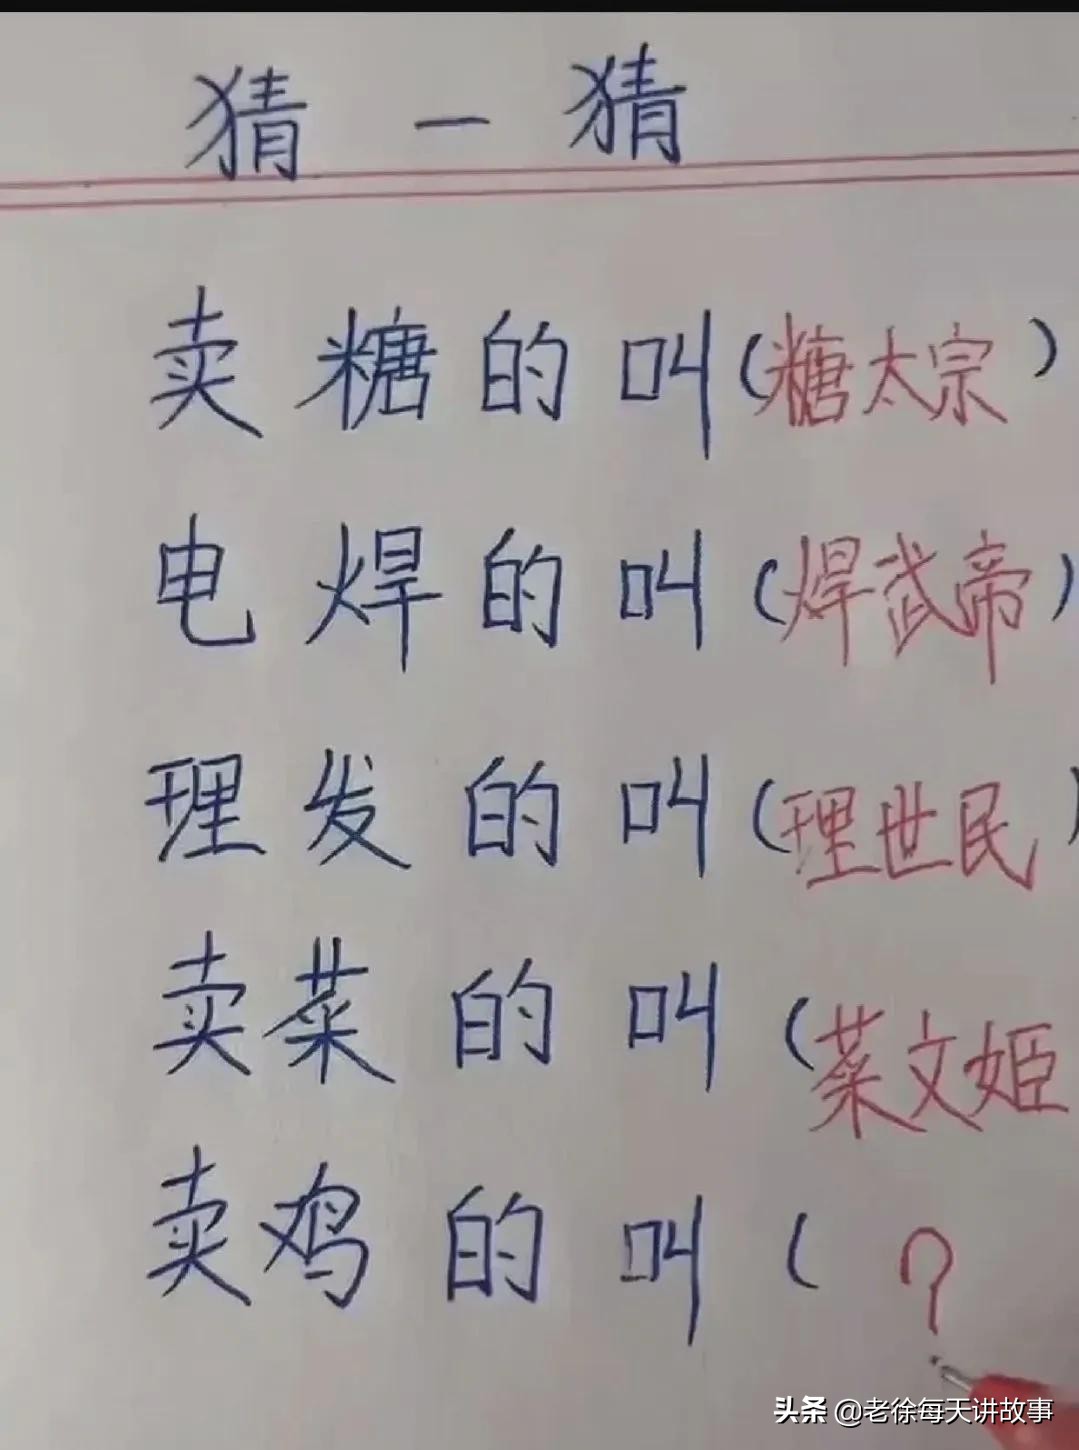 猜一猜
卖糖的叫(糖太宗)
电焊的叫(焊武帝)
理发的叫(理世民)
卖菜的叫(菜文姬
卖鸡的叫(?
头条 @老徐每天讲故事